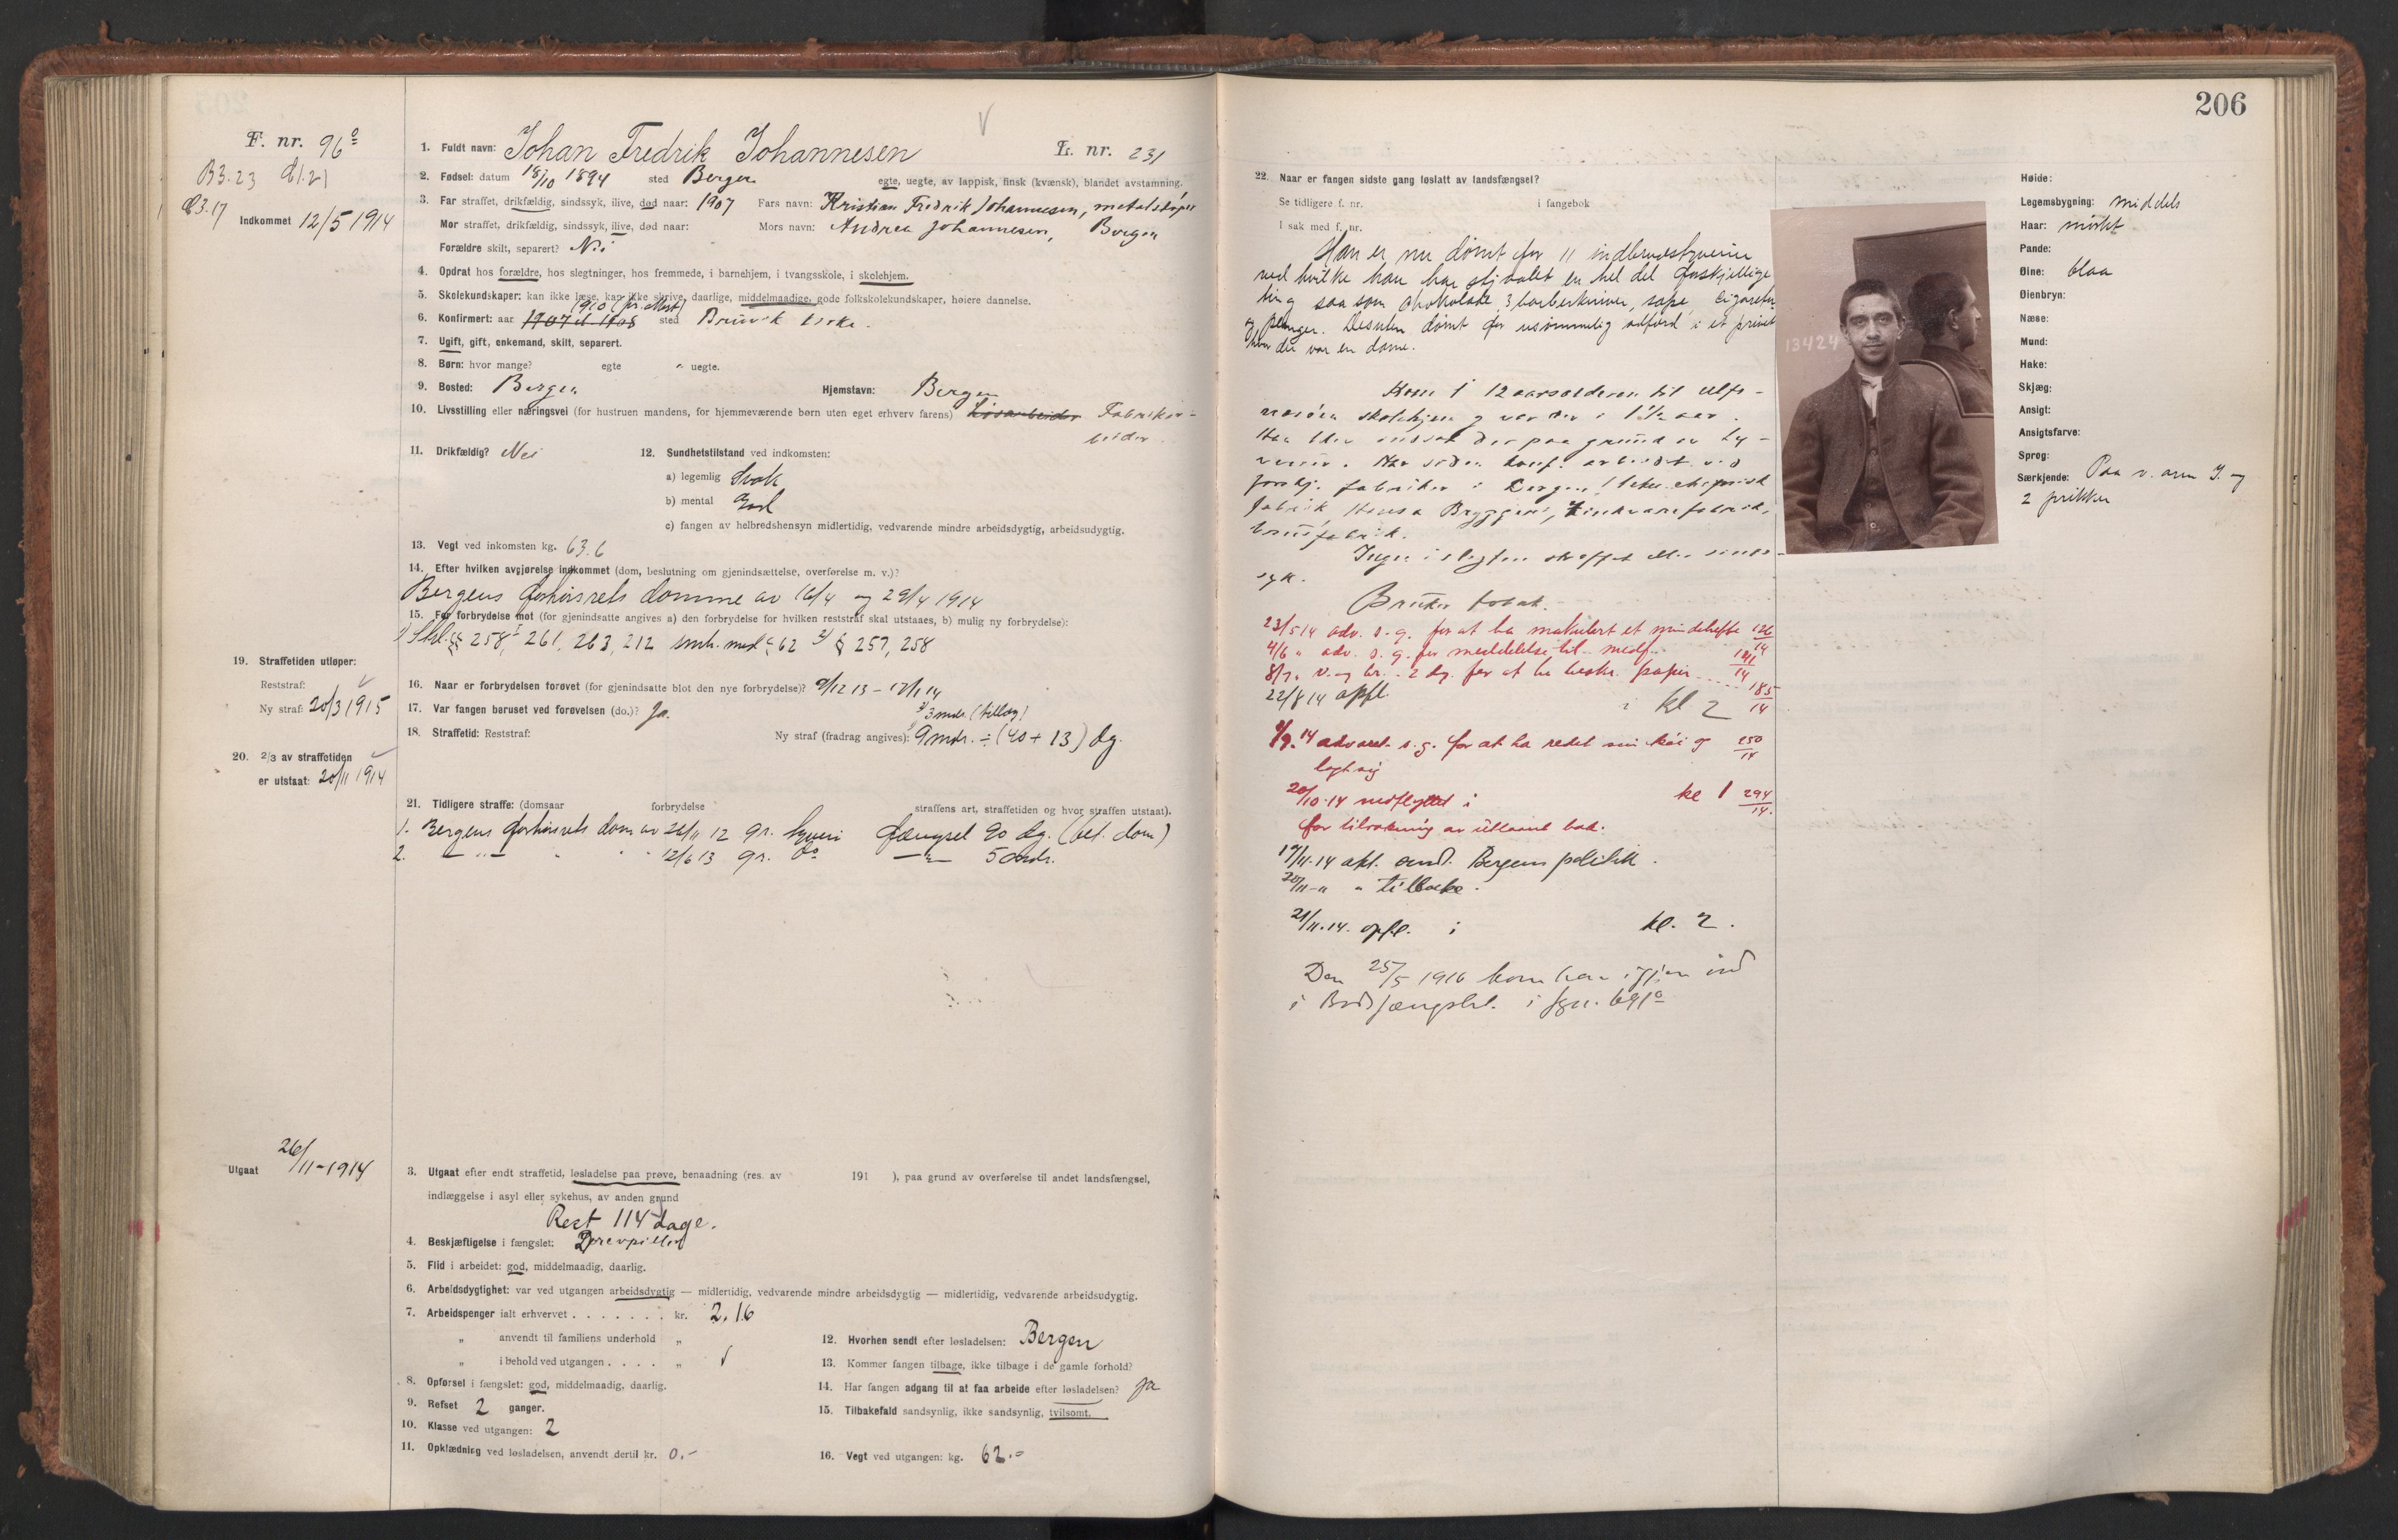 F. nr. 96a
B3.23
Indkommet 12/5 1914
1. Fuldt navn: Johan Fredrik Johannesen L. nr. 231
2. Fødsel: datum 18/10 1894 sted Bergen egte, uegte, av lappisk, finsk (kvænsk), blandet avstamning.
3. Far straffet, drikfældig, sindssyk, ilive, død naar: 1907 Fars navn: Kristian Fredrik Johannesen, metalstøper
Mor straffet, drikfældig, sindssyk, ilive, død naar: Mors navn: Andrea Johannesen, Bergen
Forældre skilt, separert? Nei
4. Opdrat hos forældre, hos slegtninger, hos fremmede, i barnehjem, i tvangsskole, i skolehjem.
5. Skolekundskaper: kan ikke læse, kan ikke skrive, daarlige, middelmaadige, gode folkskolekundskaper, høiere dannelse.
1910 (pr. Attest)
6. Konfirmert: aar 1907 el. 1908 sted Bruvik kirke.
7. Ugift, gift, enkemand, skilt, separert.
8. Børn: hvor mange? egte " uegte.
9. Bosted: Bergen Hjemstavn: Bergen
10. Livsstilling eller næringsvei (for hustruen mandens, for hjemmeværende børn uten eget erhverv farens) Løsarbeider Fabrikar-
beider
11. Drikfældig? Nei 12. Sundhetstilstand ved indkomsten:
a) legemlig Svak
b) mental God
c) fangen av helbredshensyn midlertidig, vedvarende mindre arbeidsdygtig, arbeidsudygtig.
13. Vegt ved inkomsten kg. 63.6
14. Efter hvilken avgjørelse indkommet (dom, beslutning om gjenindsættelse, overførelse m. v.)?
Bergens forhørsrets domme av 16/4 og 29/4 1914
15. For forbrydelse mot (for gjenindsatte angives a) den forbrydelse for hvilken reststraf skal utstaaes, b) mulig ny forbrydelse):
1) Strl. §§ 258, 261, 263, 212 smh. med § 62 2) § 257, 258
19. Straffetiden utløper:
Reststraf:
Ny straf: 20/3 1915
16. Naar er forbrydelsen forøvet (for gjenindsatte blot den nye forbrydelse)? 9/12 13 - 17/1 14
17. Var fangen beruset ved forøvelsen (do.)? Ja. 2) 3 mdr. (tillæg)
18. Straffetid: Reststraf: Ny straf (fradrag angives): 1) 9 mdr. ÷ (40 + 13) dg.
20. 2/3 av straffetiden
er utstaat: 20/11 1914
21. Tidligere straffe: (domsaar forbrydelse straffens art, straffetiden og hvor straffen utstaat).
1. Bergens forhørsrets dom av 26/11 12 gr. tyveri fængsel 90 dg. (bet. dom)
2. — " — " " 12/6 13 gr. do — " — 5 mdr.
Utgaat 26/11-1914
3. Utgaat efter endt straffetid, løsladelse paa prøve, benaadning (res. av 191 ), paa grund av overførelse til andet landsfængsel,
indlæggelse i asyl eller sykehus, av anden grund
Rest 114 dage.
4. Beskjæftigelse i fængslet: Drevpilleri
5. Flid i arbeidet: god, middelmaadig, daarlig.
6. Arbeidsdygtighet: var ved utgangen arbeidsdygtig — midlertidig, vedvarende mindre arbeidsdygtig — midlertidig, vedvarende arbeidsudygtig.
7. Arbeidspenger ialt erhvervet . . . . . . . kr. 2.16
" anvendt til familiens underhold "
" i behold ved utgangen . . . . "
8. Opførsel i fængslet: god, middelmaadig, daarlig.
9. Refset 2 ganger.
10. Klasse ved utgangen: 2
11. Opklædning ved løsladelsen, anvendt dertil kr. 0.-
12. Hvorhen sendt efter løsladelsen: Bergen
13. Kommer fangen tilbage, ikke tilbage i de gamle forhold?
14. Har fangen adgang til at faa arbeide efter løsladelsen? ja
15. Tilbakefald sandsynlig, ikke sandsynlig, tvilsomt.
16. Vegt ved utgangen: kg. 62.-
206
22. Naar er fangen sidste gang løslatt av landsfængsel?
Se tidligere f. nr. i fangebok
I sak med f. nr.
Han er nu dømt for 11 indbrudstyverier
ved hvilke han har stjaalet en hel del forskjellige
ting saa som chokolade, 3 barberkniver, sæpe, cigaretter
og penger. Desuten dømt for usømmelig adferd i et privet
hvor der var en dame.
Kom i 12 aarsalderen til Ulfs-
nesøen skolehjem og var der i 1 1/2 aar
Han blev indsat der paa grund av ty-
verier. Har siden konf. arbeidet ved
forskj. fabriker i Bergen
fabrik, Hansa Bryggeri,
brusfabrik.
Ingen i slegten straffet eller sinds-
syk.
Bruker tobak.
23/5 14 adv. s. g. for at ha makulert et mindehefte 126/14
4/6 " adv. s. g. for meddelelse til medf. 141/14
8/7 " v. og br. - 2 dg. for at ha beskr. papir 185/14
22/8 14 opfl. i kl 2
9/9. 14 advaret s. g. for at ha redet sin køi og 250/14
lagt sig
20/10-14 nedflyttet i kl 1 294/14.
for tilvakning av utlaant bok.
17/11-14 afl. aml. Bergens politik.
20/11-" " tilbake.
21/11-14. opfl. i kl. 2.
Den 25/5 1916 kom han igjen ind
i Bodsfængslet. i fgn. 691a
13424
Høide:
Legemsbygning: middels
Haar: mørkt
Pande:
Øine: blaa
Øienbryn:
Næse:
Mund:
Hake:
Skjæg:
Ansigt:
Ansigtsfarve:
Sprog:
Særkjende: Paa v. arm J. og
2 prikker